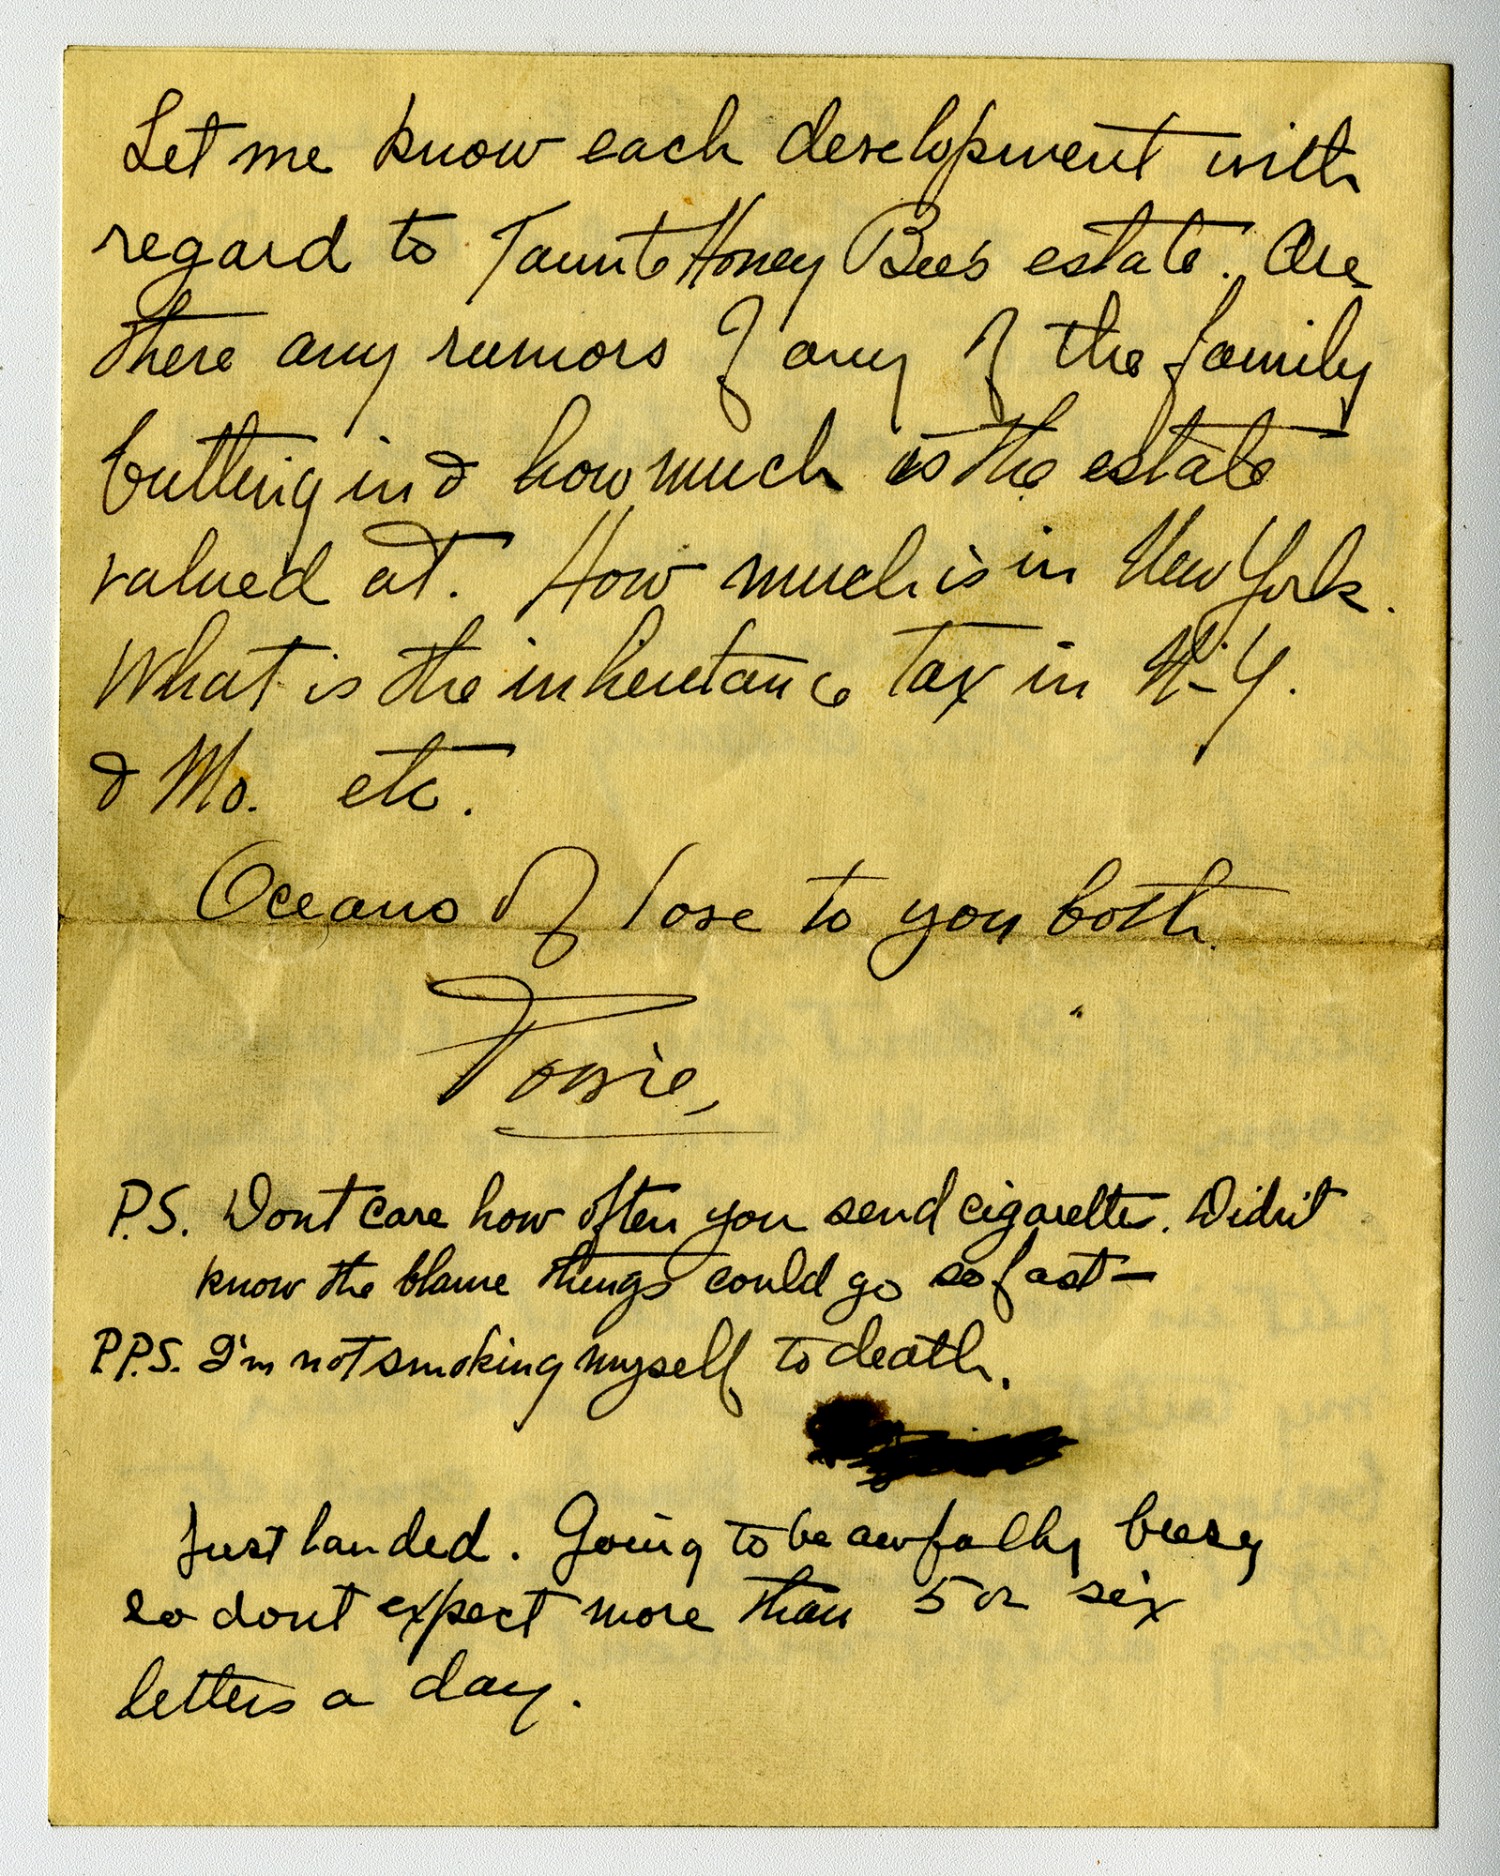 Let me know each development with
regard to Taunte Honey Bee's estate. Are
there any rumors of any of the family
butting in & how much is the estate
valued at. How much is in New York.
What is the inheritance tax in N-Y.
& Mo. etc.
Oceans of love to you both.
P.S. Dont care how often you send cigarettes. Didn't
know the blame things could go so fast —
P.P.S. I'm not smoking myself to death.
Just landed. Going to be awfully busy
so dont expect more than 5 or six
letters a day.